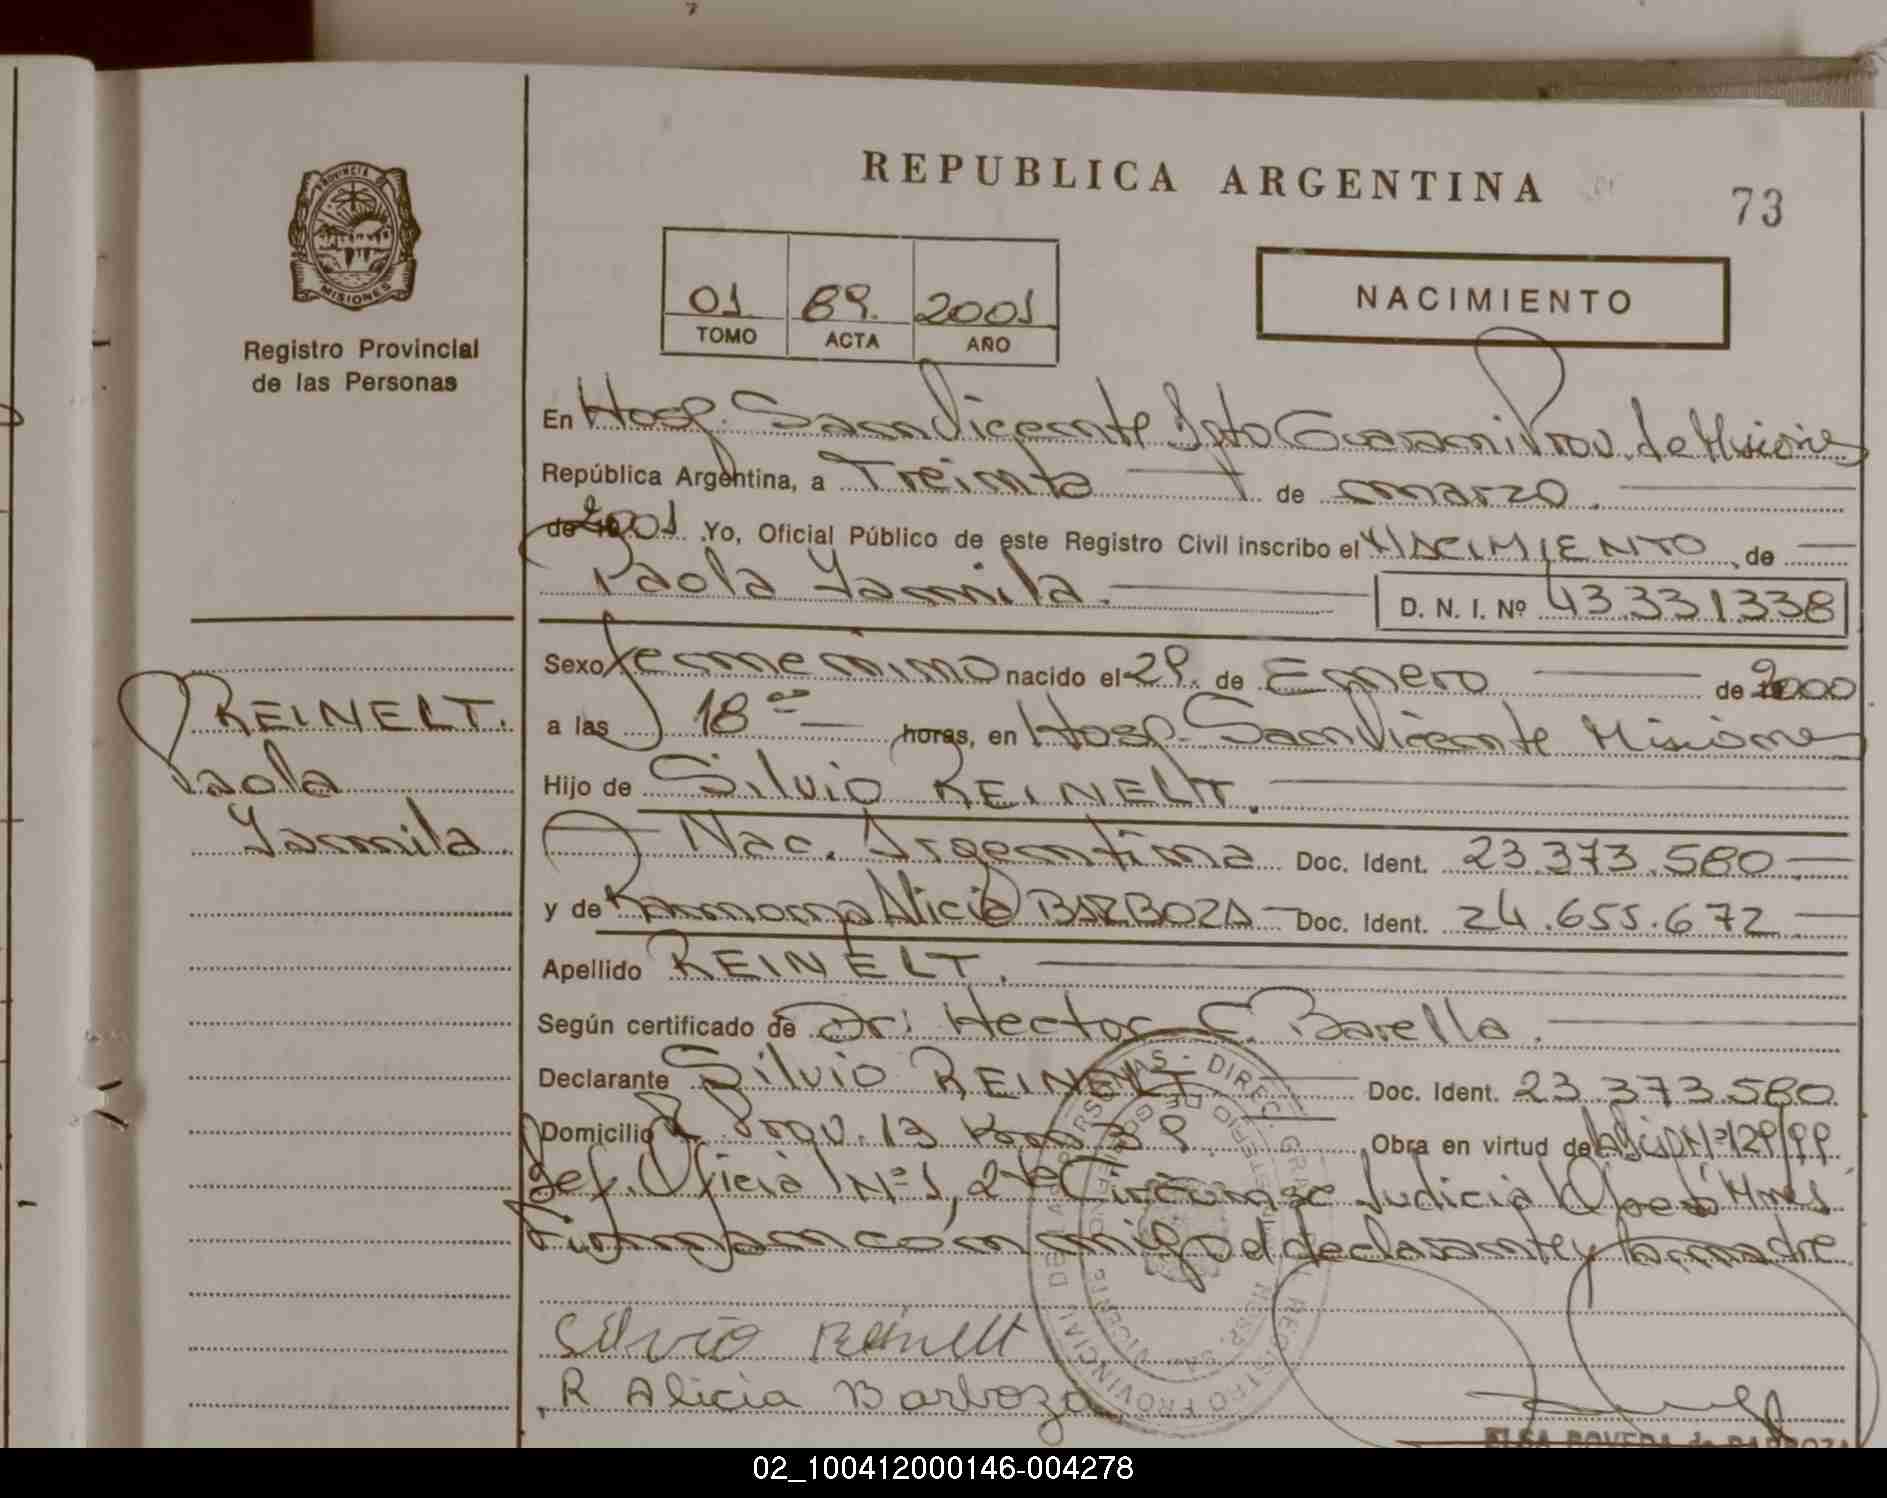 REPUBLICA ARGENTINA
73
PROVINCIA DE
MISIONES
Registro Provincial
de las Personas
01 89. 2001
TOMO ACTA AÑO
NACIMIENTO
En Hosp. San Vicente Dpto Guarani Prov. de Misiones
República Argentina, a Treinta de marzo.
de 2001 Yo, Oficial Público de este Registro Civil inscribo el NACIMIENTO de
Paola Yamila. D. N. I. Nº 43.331.338
Sexo femenino nacido el 29. de Enero de 2000
a las 18 horas, en Hosp. San Vicente Misiones
Hijo de Silvio REINELT.
Nac. Argentina Doc. Ident. 23.373.580
y de Ramona Alicia BARBOZA Doc. Ident. 24.655.672
Apellido REINELT.
Según certificado de Dr: Hector C. Barella.
Declarante Silvio REINELT Doc. Ident. 23.373.580
Domicilio R. Prov. 13 Km 39. Obra en virtud de Nº 129/99
Def. Oficial Nº 1, 2da Circunsc Judicial Oberá Mnes
Firman conmigo el declarante y la madre
Silvio Reinelt
R Alicia Barboza
REINELT.
Paola
Yamila
ELSA POVEDA de BARBOZA
02_100412000146-004278